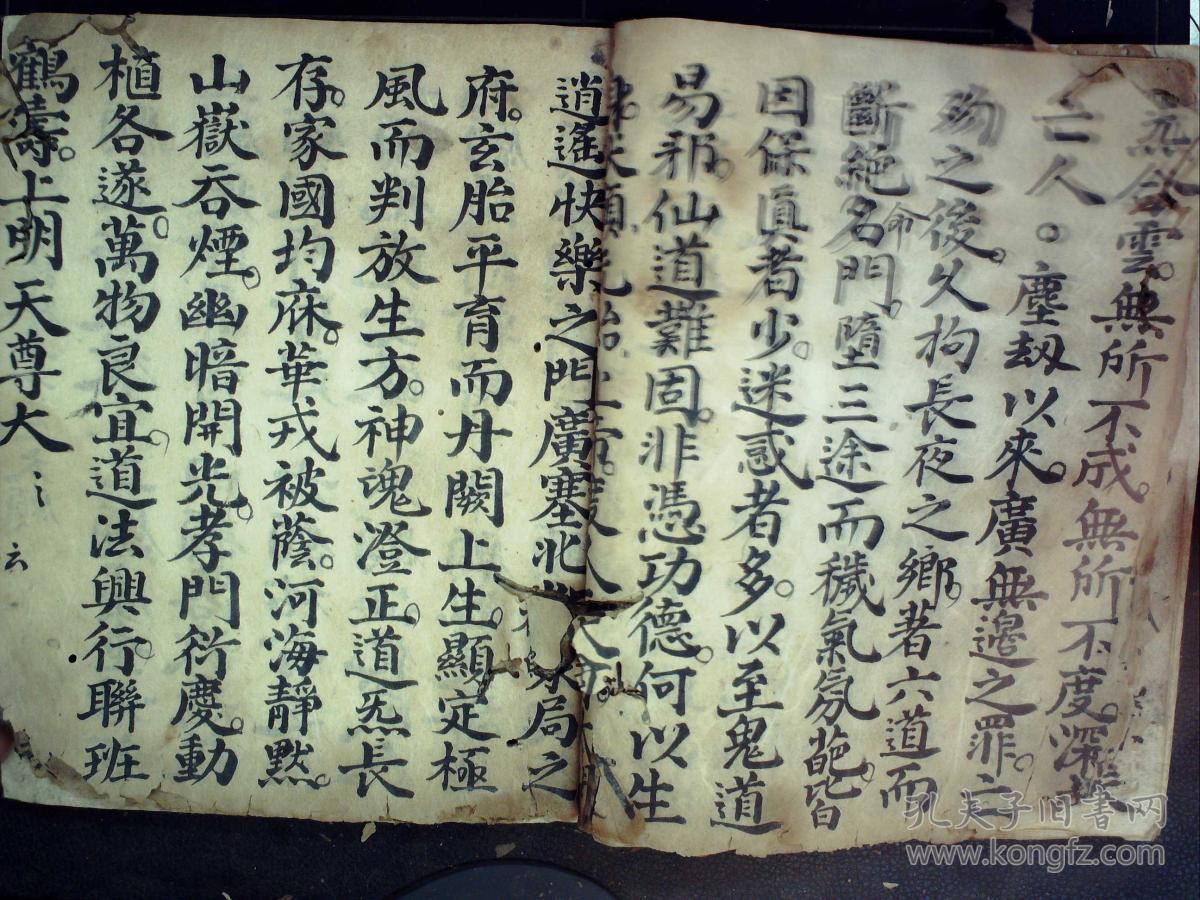 無所不成。無所不度。深
亡人。塵劫以來。廣無邊之罪。之
殁之後。久拘長夜之鄉。著六道而
斷絶名命門。墮三途而穢氣氛葩。皆
因保真者少。迷惑者多。以至鬼道
易邪。仙道難固。非憑功德。何以生
逍遙快樂之門。廣塞北 局之
府。玄胎平育而丹闕上生。顯定極
風而判放生方。神魂澄正。道炁長
存。家國均庥。華戎被蔭。河海靜默。
山嶽吞煙。幽暗開光。孝門衍慶。動
植各遂。萬物良宜。道法興行。聯班
鶴壽。上明天尊大
云
孔夫子旧书网
www.kongfz.com